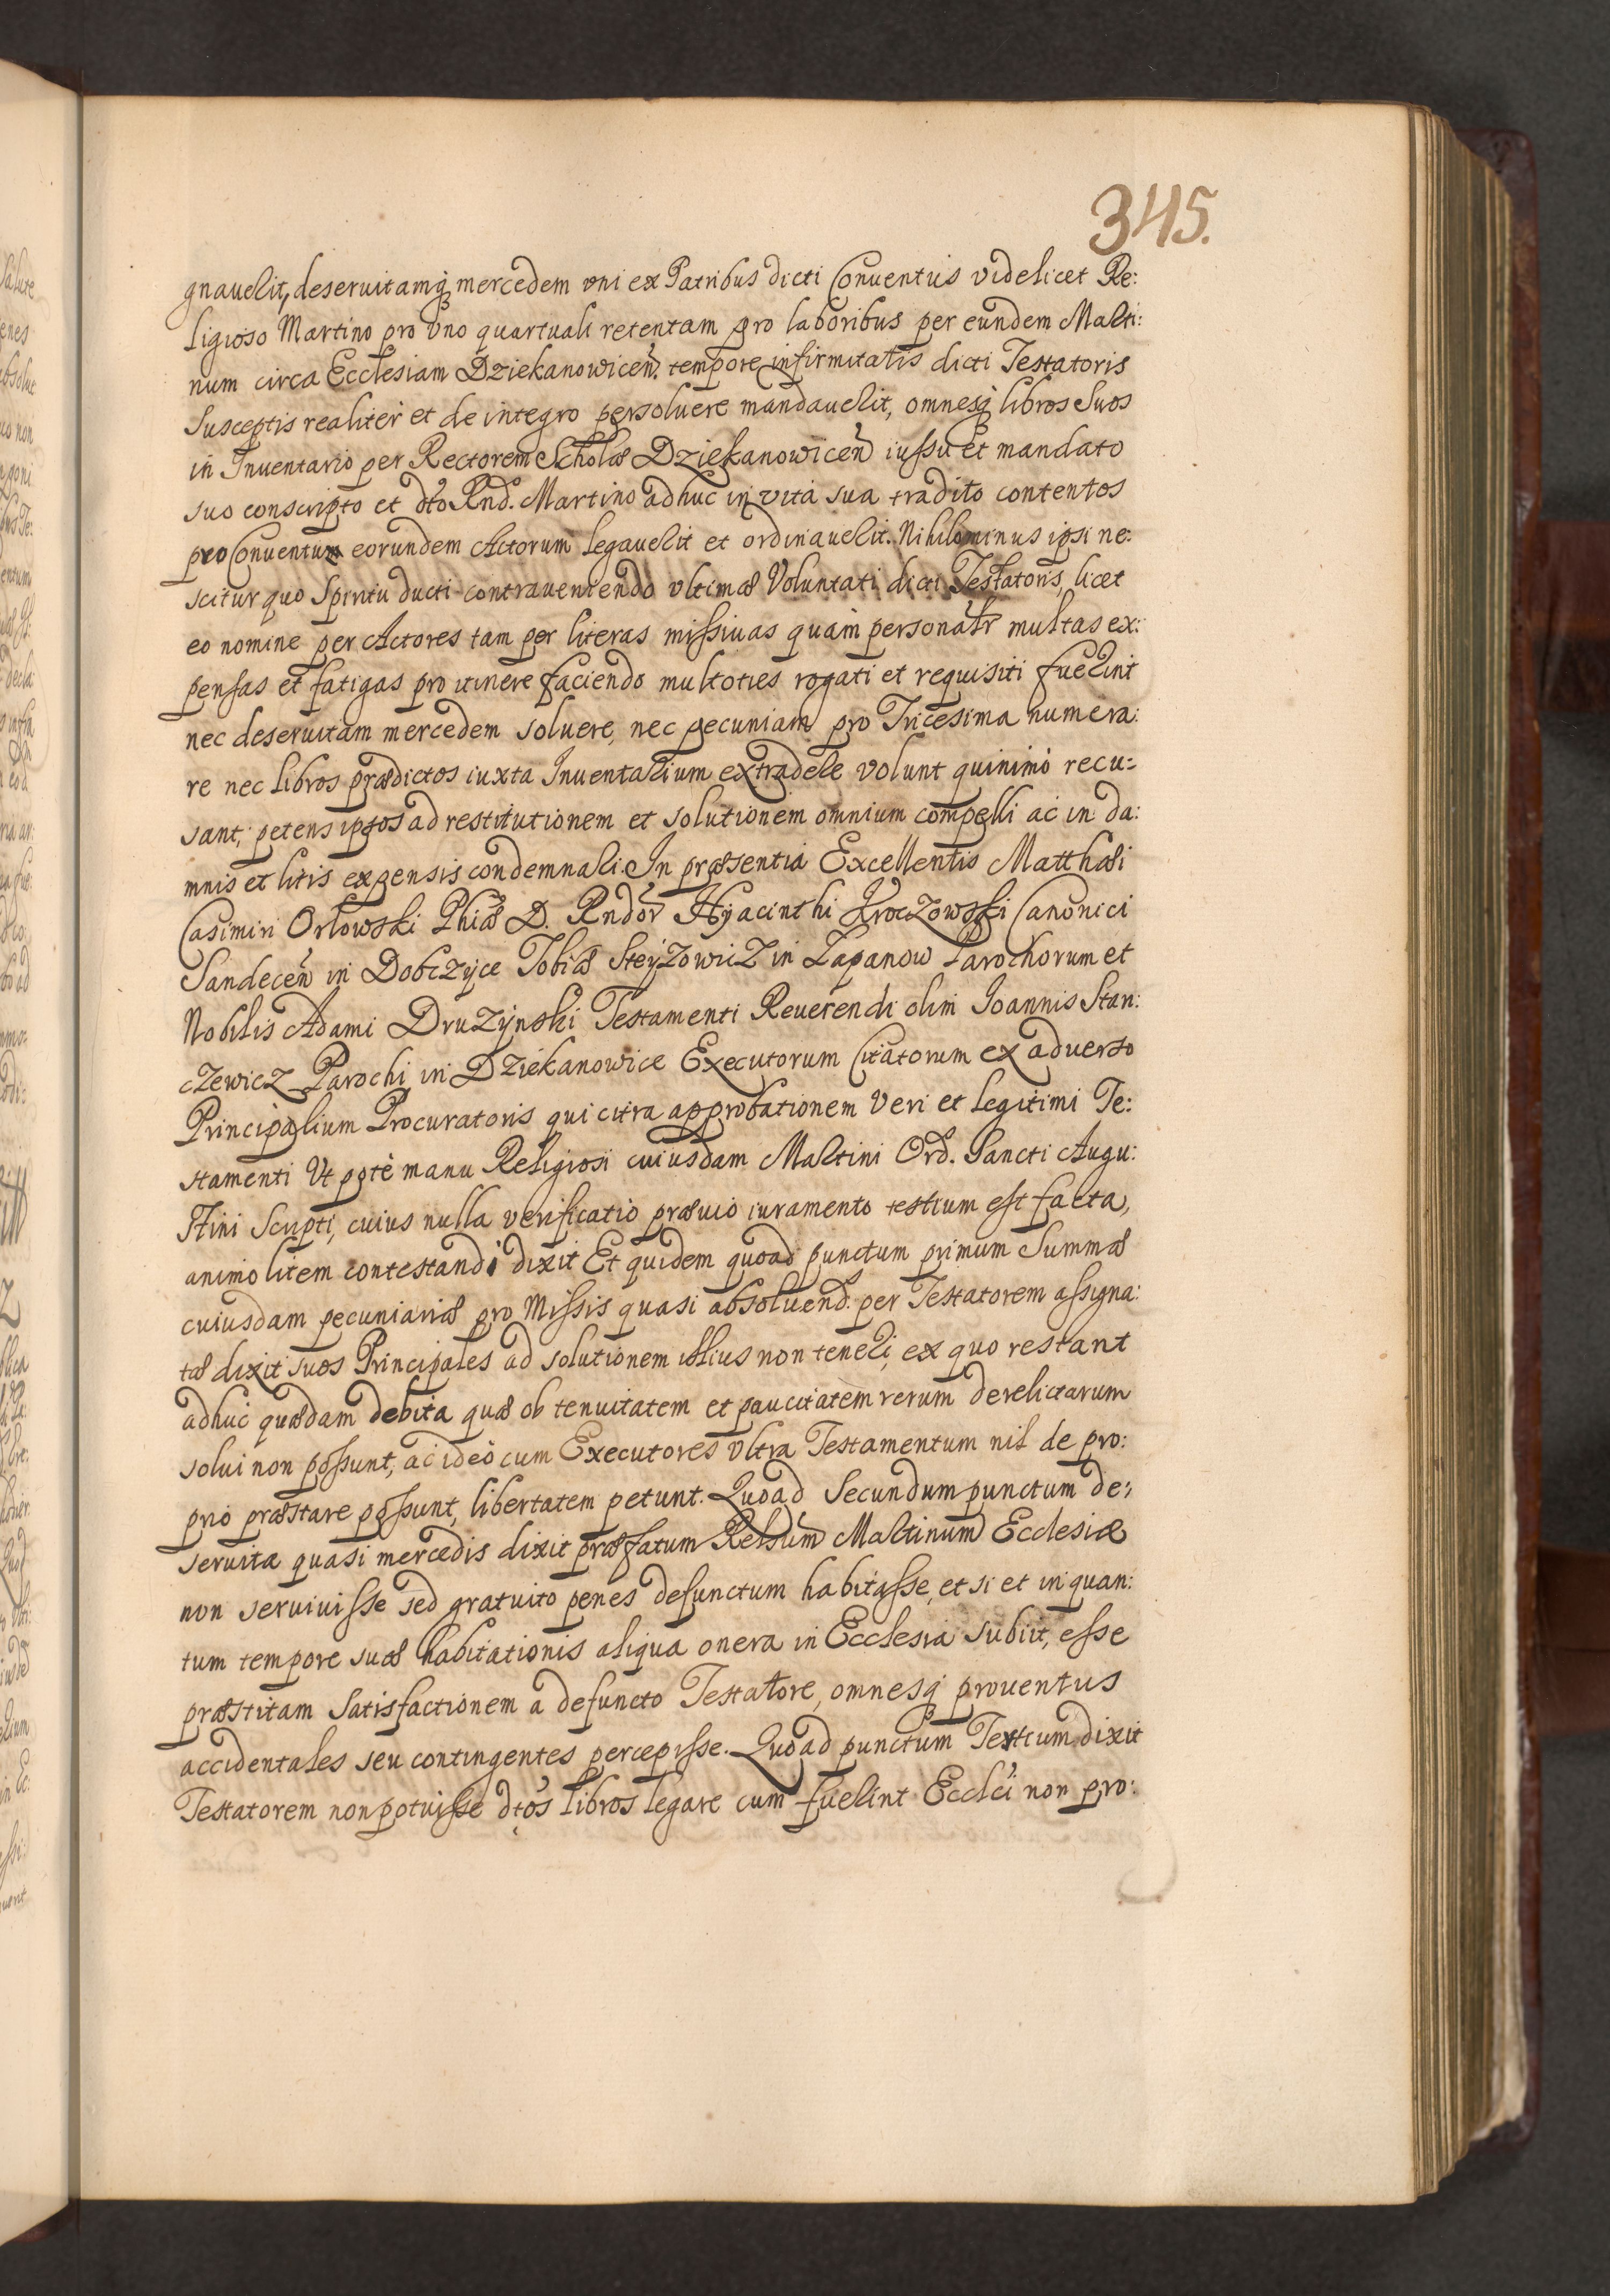 345.
gnauerit, deseruitamq; mercedem vni ex Patribus dicti Conuentus videlicet Re:
ligioso Martino pro vno quartuali retentam pro laboribus per eundem Marti:
num circa Ecclesiam Dziekanowiceñ. tempore infirmitatis dicti Testatoris
Susceptis realiter et de integro persoluere mandauerit, omnesq; libros Suos
in Inuentario per Rectorem Scholæ Dziekanowiceñ iussu et mandato
suo conscripto et dto Rnd. Martino adhuc in vita sua tradito contentos
pro Conuentum eorundem Actorum legauerit et ordinauerit. Nihilominus ipsi ne:
scitur quo Spiritu ducti contraueniendo vltimæ Voluntati dicti Testatoris, licet
eo nomine per Actores tam per literas missiuas quàm personalr multas ex:
pensas et fatigas pro itinere faciendo multoties rogati et requisiti fuerint
nec deseruitam mercedem soluere, nec pecuniam pro Tricesima numera:
re nec libros prædictos iuxta Inuentarium extradere volunt quinimò recu:
sant; petens ipsos ad restitutionem et solutionem omnium compelli ac in da:
mnis et litis expensis condemnari. In præsentia Excellentis Matthæi
Casimiri Orłowski Phiæ D. Rndor Hyacinthi Kroczowski Canonici
Sandeceñ in Dobczÿce Tobiæ Steÿzowicz in Łapanow Parochorum et
Nobilis Adami Druzÿnski Testamenti Reuerendi olim Ioannis Stan:
czewicz Parochi in Dziekanowice Executorum Citatorum ex aduerso
Principalium Procuratoris qui citra approbationem veri et legitimi Te:
stamenti Vt potè manu Religiosi cuiusdam Martini Ord. Sancti Augu:
stini Scripti, cuius nulla verificatio præuio iuramento testium est facta,
animo litem contestandi dixit Et quidem quoad punctum primum Summæ
cuiusdam pecuniariæ pro Missis quasi absoluend. per Testatorem assigna:
tæ dixit suos Principales ad solutionem illius non teneri, ex quo restant
adhuc quædam debita quæ ob tenuitatem et paucitatem rerum derelictarum
solui non possunt, ac ideò cum Executores vltra Testamentum nil de pro:
prio præstare possunt, libertatem petunt. Quoad Secundum punctum de:
seruitæ quasi mercedis dixit præfatum Relsum Martinum Ecclesiæ
non seruiuisse sed gratuito penes defunctum habitasse, et si et in quan:
tum tempore suæ habitationis aliqua onera in Ecclesia subiit, esse
præstitam Satisfactionem a defuncto Testatore, omnesq; prouentus
accidentales seu contingentes percepisse. Quoad punctum Tertium dixit
Testatorem non potuisse dtos libros legare cum fuerint Ecclci non pro: